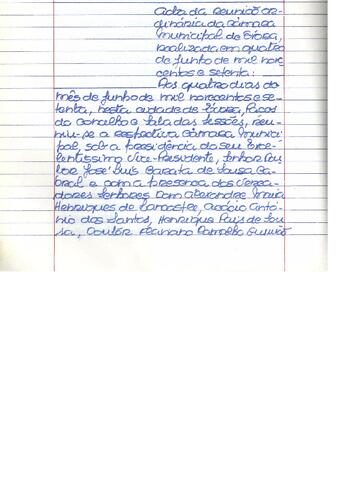 Acta da Reunião or-
dinária da Câmara
Municipal de Évora,
realizada em quatro
de Junho de mil nove
centos e setenta:
Aos quatro dias do
mês de Junho de mil novecentos e se-
tenta, nesta cidade de Évora, Paços
do Concelho e Sala das Sessões, reu-
niu-se a respectiva Câmara Munici-
pal, sob a presidência do seu Exce-
lentíssimo Vice-Presidente, Senhor
José Luís Barata de Sousa Ca-
bral e com a presença dos Verea-
dores Senhores Dom Alexandre Maria
Henriques de Lancastre, Acácio Antó-
nio dos Santos, Henrique Pais de Sou-
sa, Doutor Carvalho